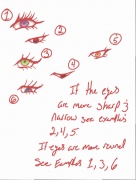 1
2
3
4
5
6
If the eyes
are more sharp &
narrow see examples
2,4,5.
If eyes are more round
See Examples 1,3,6